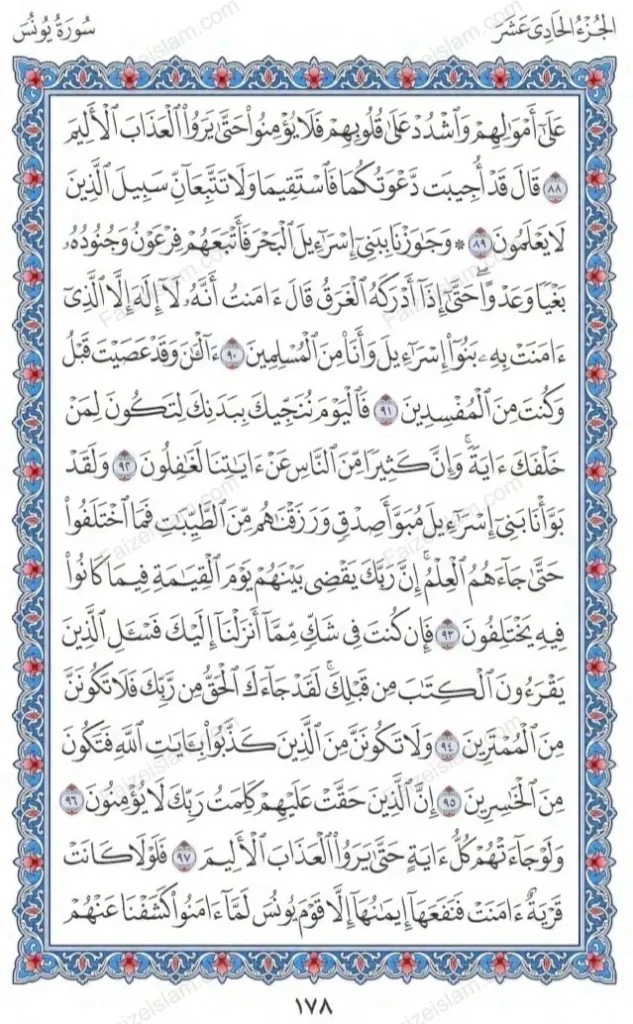 الجُزْءُ الحَادِى عَشَرَ
سُورَةُ يُونُسَ
عَلَىٰٓ أَمْوَٰلِهِمْ وَٱشْدُدْ عَلَىٰ قُلُوبِهِمْ فَلَا يُؤْمِنُوا۟ حَتَّىٰ يَرَوُا۟ ٱلْعَذَابَ ٱلْأَلِيمَ
٨٨ قَالَ قَدْ أُجِيبَت دَّعْوَتُكُمَا فَٱسْتَقِيمَا وَلَا تَتَّبِعَآنِّ سَبِيلَ ٱلَّذِينَ
لَا يَعْلَمُونَ ٨٩ * وَجَٰوَزْنَا بِبَنِىٓ إِسْرَٰٓءِيلَ ٱلْبَحْرَ فَأَتْبَعَهُمْ فِرْعَوْنُ وَجُنُودُهُۥ
بَغْيًا وَعَدْوًا ۖ حَتَّىٰٓ إِذَآ أَدْرَكَهُ ٱلْغَرَقُ قَالَ ءَامَنتُ أَنَّهُۥ لَآ إِلَٰهَ إِلَّا ٱلَّذِىٓ
ءَامَنَتْ بِهِۦ بَنُوٓا۟ إِسْرَٰٓءِيلَ وَأَنَا۠ مِنَ ٱلْمُسْلِمِينَ ٩٠ ءَآلْـَٰٔنَ وَقَدْ عَصَيْتَ قَبْلُ
وَكُنتَ مِنَ ٱلْمُفْسِدِينَ ٩١ فَٱلْيَوْمَ نُنَجِّيكَ بِبَدَنِكَ لِتَكُونَ لِمَنْ
خَلْفَكَ ءَايَةً ۚ وَإِنَّ كَثِيرًا مِّنَ ٱلنَّاسِ عَنْ ءَايَٰتِنَا لَغَٰفِلُونَ ٩٢ وَلَقَدْ
بَوَّأْنَا بَنِىٓ إِسْرَٰٓءِيلَ مُبَوَّأَ صِدْقٍ وَرَزَقْنَٰهُم مِّنَ ٱلطَّيِّبَٰتِ فَمَا ٱخْتَلَفُوا۟
حَتَّىٰ جَآءَهُمُ ٱلْعِلْمُ ۚ إِنَّ رَبَّكَ يَقْضِى بَيْنَهُمْ يَوْمَ ٱلْقِيَٰمَةِ فِيمَا كَانُوا۟
فِيهِ يَخْتَلِفُونَ ٩٣ فَإِن كُنتَ فِى شَكٍّ مِّمَّآ أَنزَلْنَآ إِلَيْكَ فَسْـَٔلِ ٱلَّذِينَ
يَقْرَءُونَ ٱلْكِتَٰبَ مِن قَبْلِكَ ۚ لَقَدْ جَآءَكَ ٱلْحَقُّ مِن رَّبِّكَ فَلَا تَكُونَنَّ
مِنَ ٱلْمُمْتَرِينَ ٩٤ وَلَا تَكُونَنَّ مِنَ ٱلَّذِينَ كَذَّبُوا۟ بِـَٔايَٰتِ ٱللَّهِ فَتَكُونَ
مِنَ ٱلْخَٰسِرِينَ ٩٥ إِنَّ ٱلَّذِينَ حَقَّتْ عَلَيْهِمْ كَلِمَتُ رَبِّكَ لَا يُؤْمِنُونَ ٩٦
وَلَوْ جَآءَتْهُمْ كُلُّ ءَايَةٍ حَتَّىٰ يَرَوُا۟ ٱلْعَذَابَ ٱلْأَلِيمَ ٩٧ فَلَوْلَا كَانَتْ
قَرْيَةٌ ءَامَنَتْ فَنَفَعَهَآ إِيمَٰنُهَآ إِلَّا قَوْمَ يُونُسَ لَمَّآ ءَامَنُوا۟ كَشَفْنَا عَنْهُمْ
١٧٨
Faizeislam.com